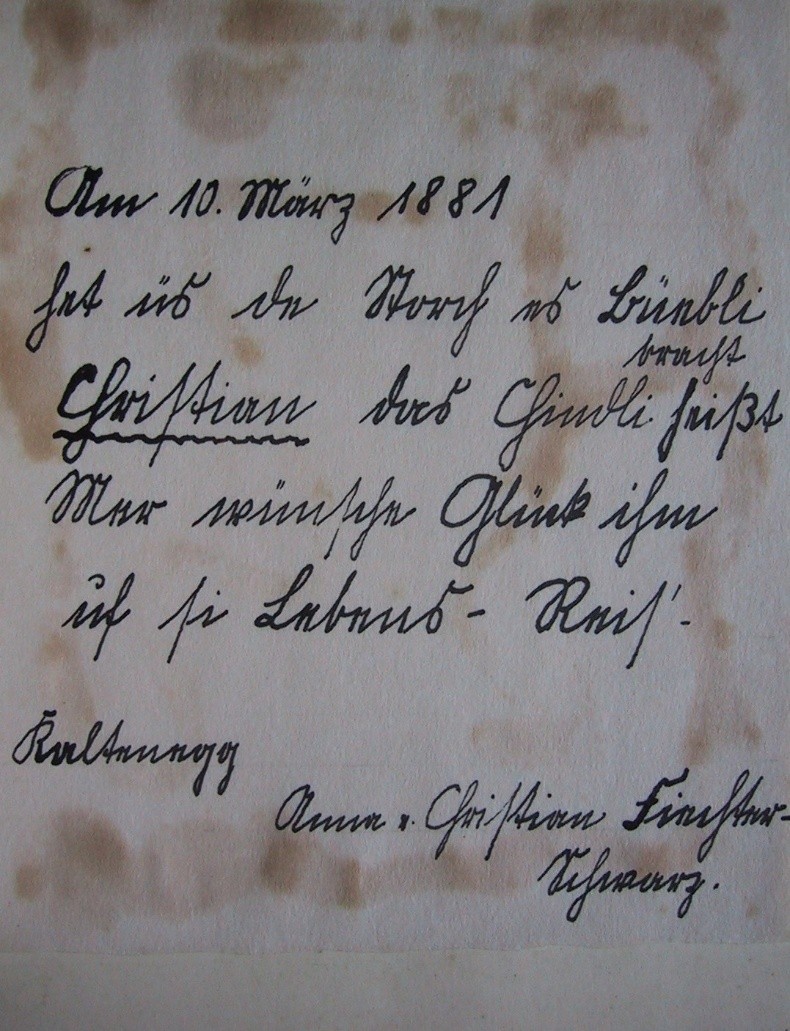 Am 10. März 1881
hat üs de Storch es Büebli
bracht
Christian das Chindli heißt
Mer wünsche Glück ihm
uf si Lebens- Reis'.
Kaltenegg
Anna u. Christian Fiechter-
Schwarz.